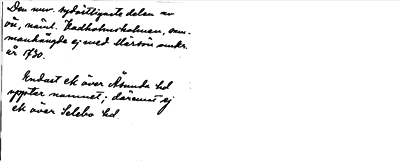 Den nuv. sydöstligaste delen av
ön, näml. Kadholmskalven, sam-
manhängde ej med Mörkön omkr.
år 1730.
Endast ek över Åsunda hd
upptar namnet; däremot ej
ek över Selebo hd